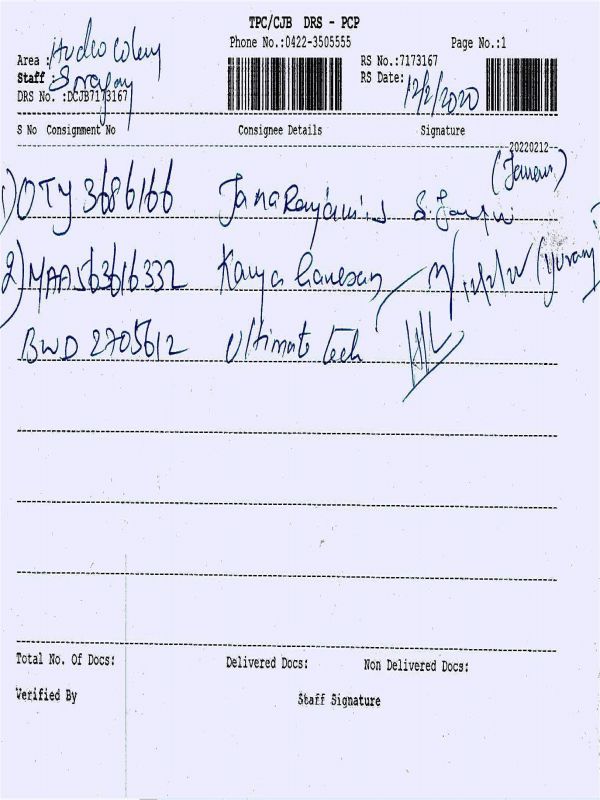 TPC/CJB DRS - PCP
Phone No.:0422-3505555 Page No.:1
Area : Hudco Colony
RS No.:7173167
Staff :
RS Date: 12/2/2020
DRS No. :DCJB7173167
S No Consignment No Consignee Details Signature
20220212
1) OTY 3686166 Janaranjani
2) MAA563616332 Kavya Ganesan
BWD 2705612 Ultimate Tech
Total No. Of Docs: Delivered Docs: Non Delivered Docs:
Verified By Staff Signature